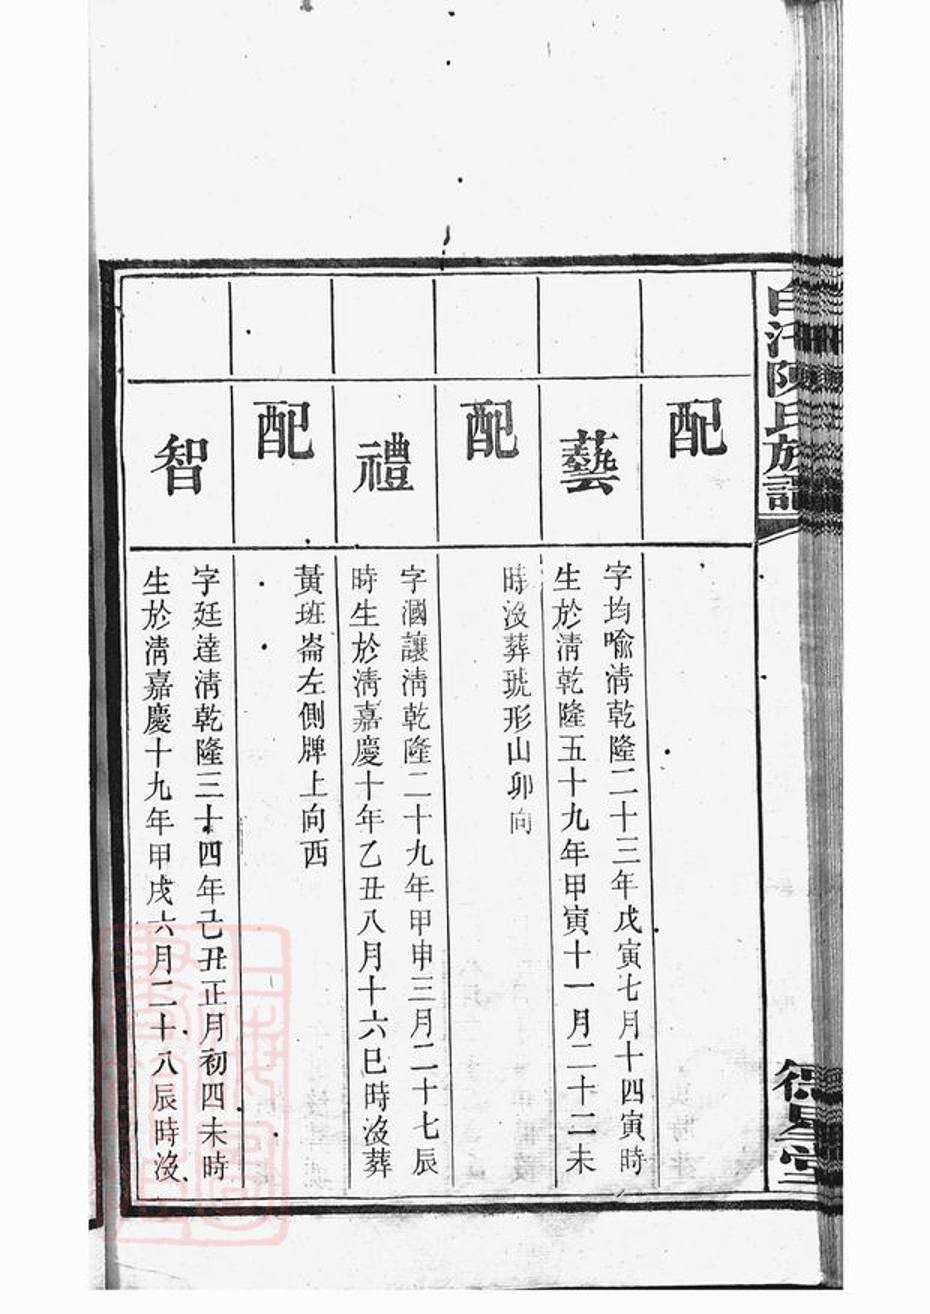 陳氏族譜
德星堂
配
藝
字均喻清乾隆二十三年戊寅七月十四寅時
生於清乾隆五十九年甲寅十一月二十二未
配
時沒葬琥形山卯向
禮
字國讓清乾隆二十九年甲申三月二十七辰
時生於清嘉慶十年乙丑八月十六巳時沒葬
配
黃班崙左側牌上向西
智
字廷達清乾隆三十四年己丑正月初四未時
生於清嘉慶十九年甲戌六月二十八辰時沒